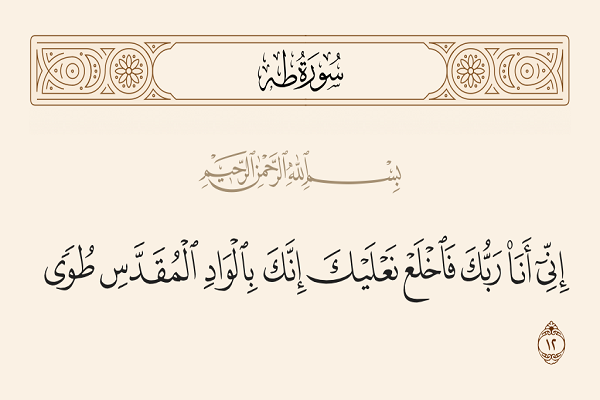 سُورَةُ طه
بِسْمِ ٱللَّهِ ٱلرَّحْمَٰنِ ٱلرَّحِيمِ
إِنِّىٓ أَنَا۠ رَبُّكَ فَٱخْلَعْ نَعْلَيْكَ إِنَّكَ بِٱلْوَادِ ٱلْمُقَدَّسِ طُوًى
١٢